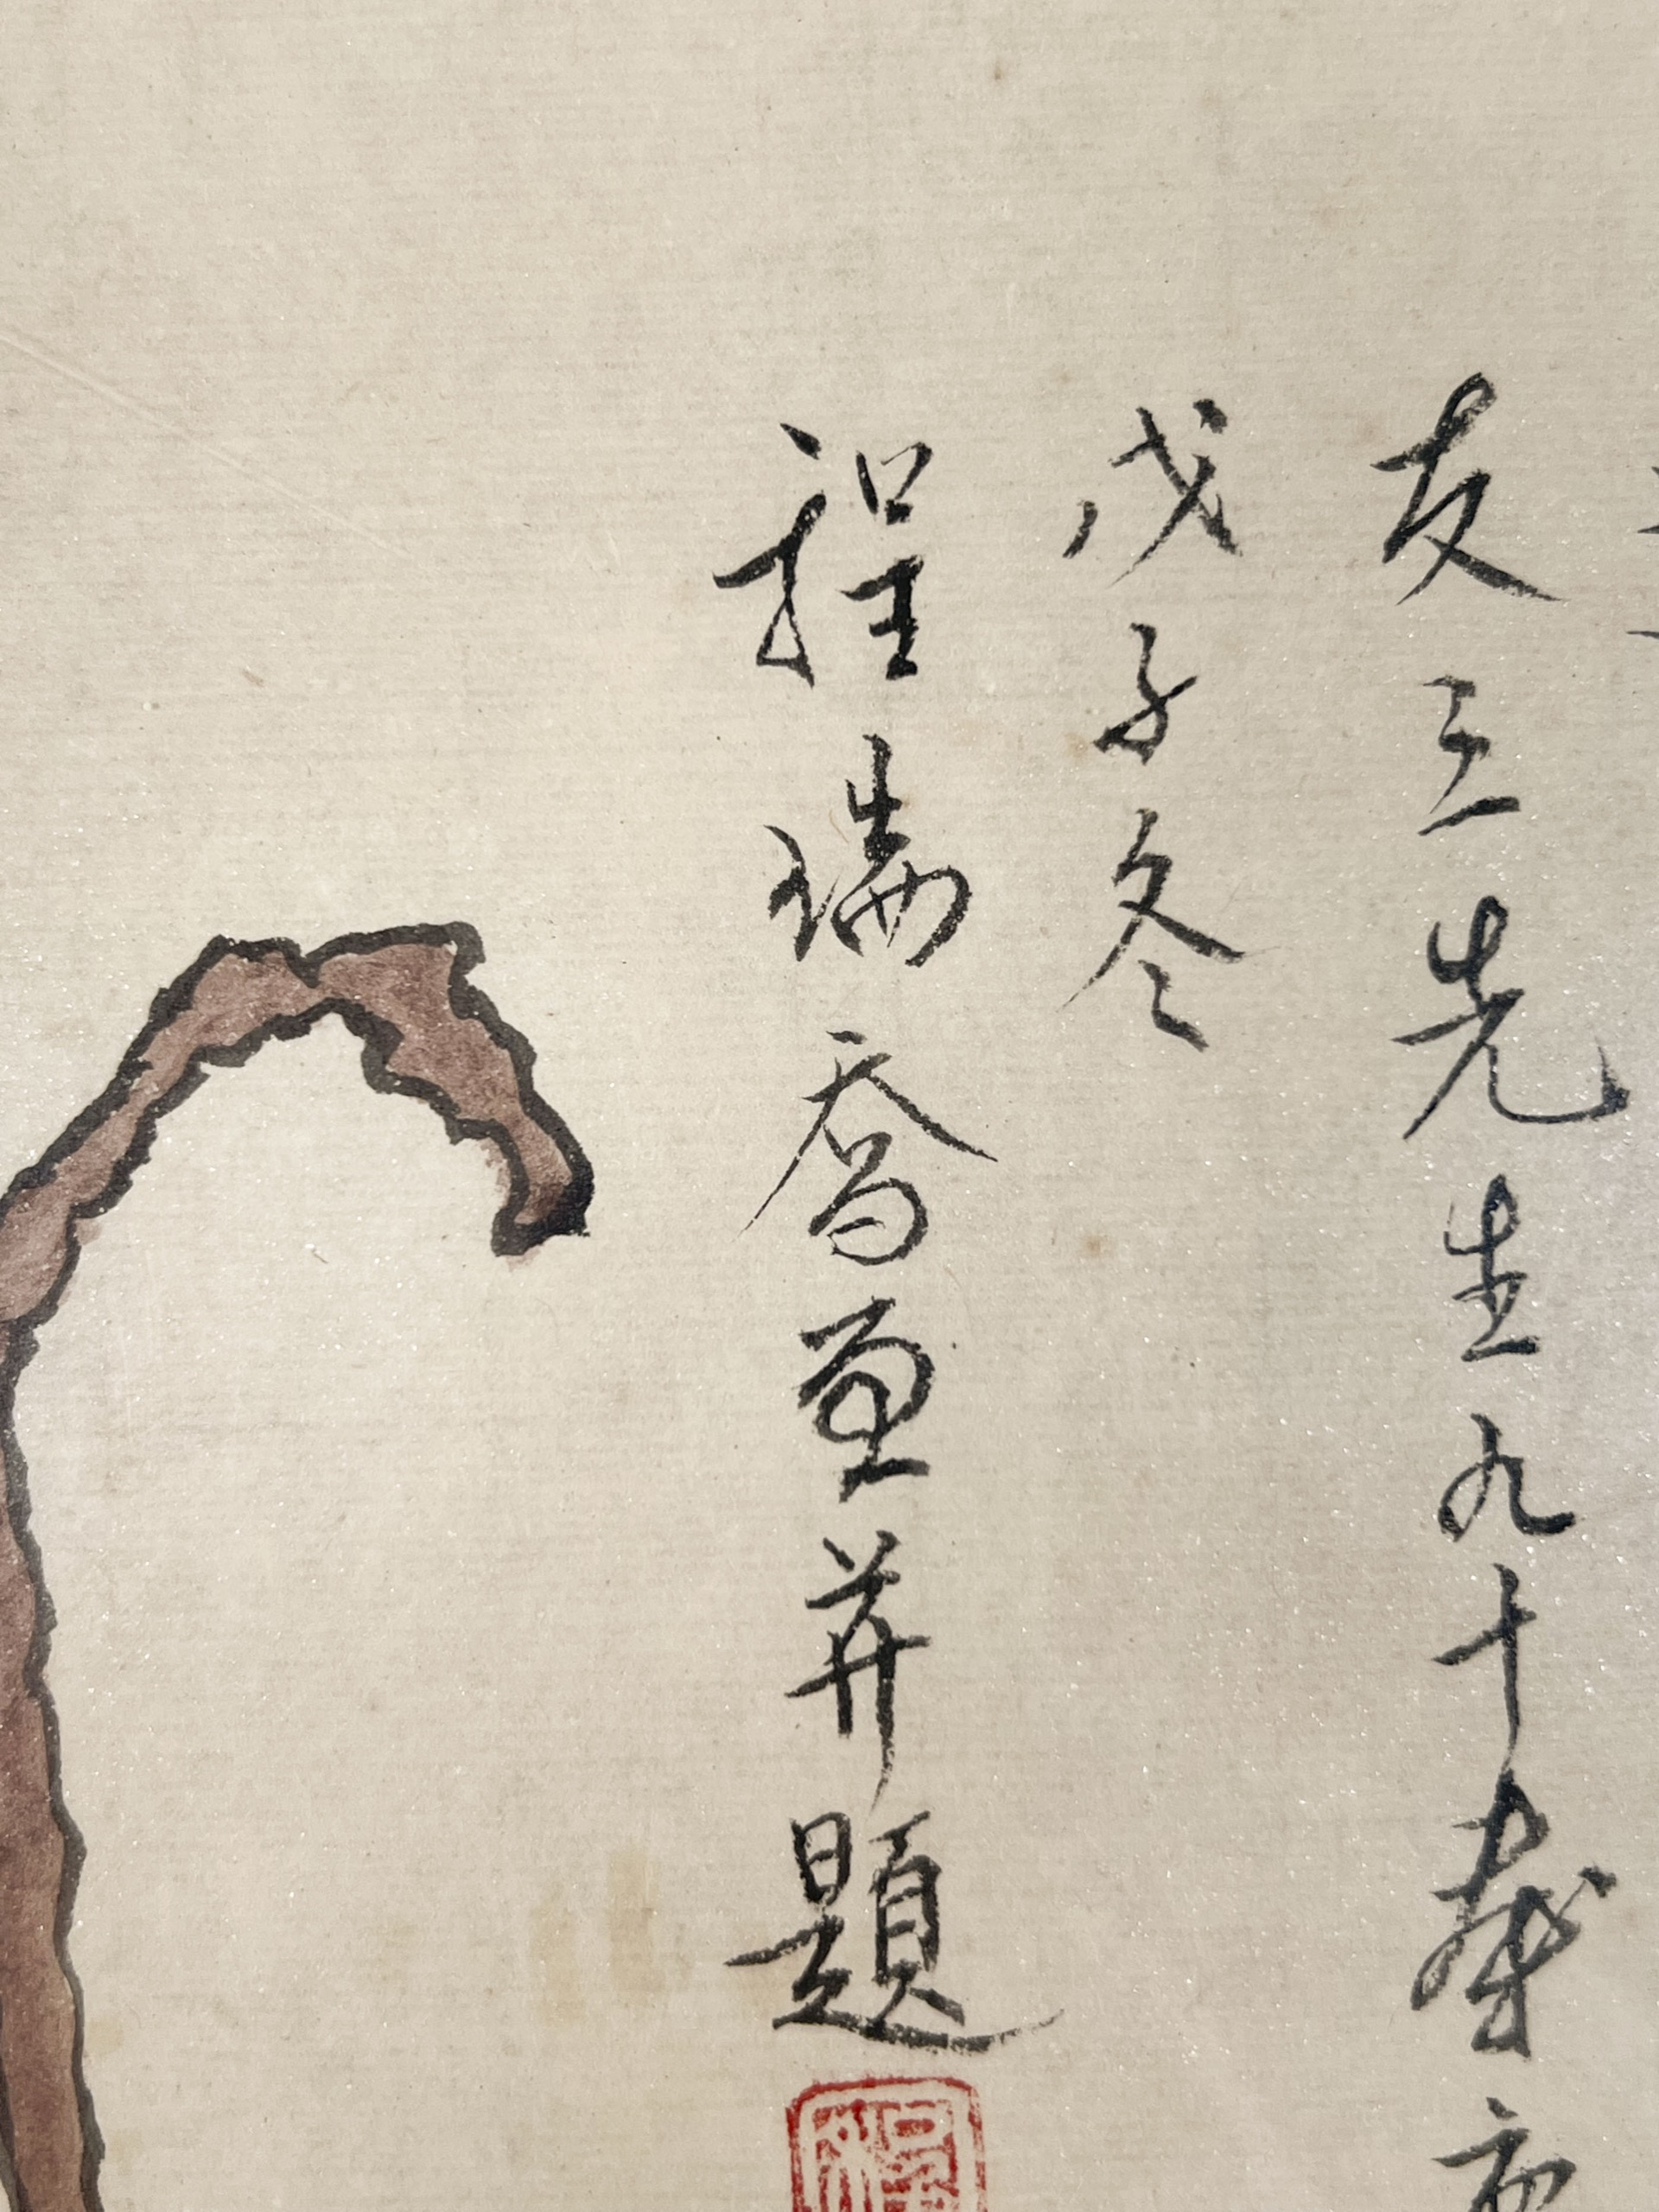 友三先生九十壽
戊子冬
程瑞喬畫并題
程